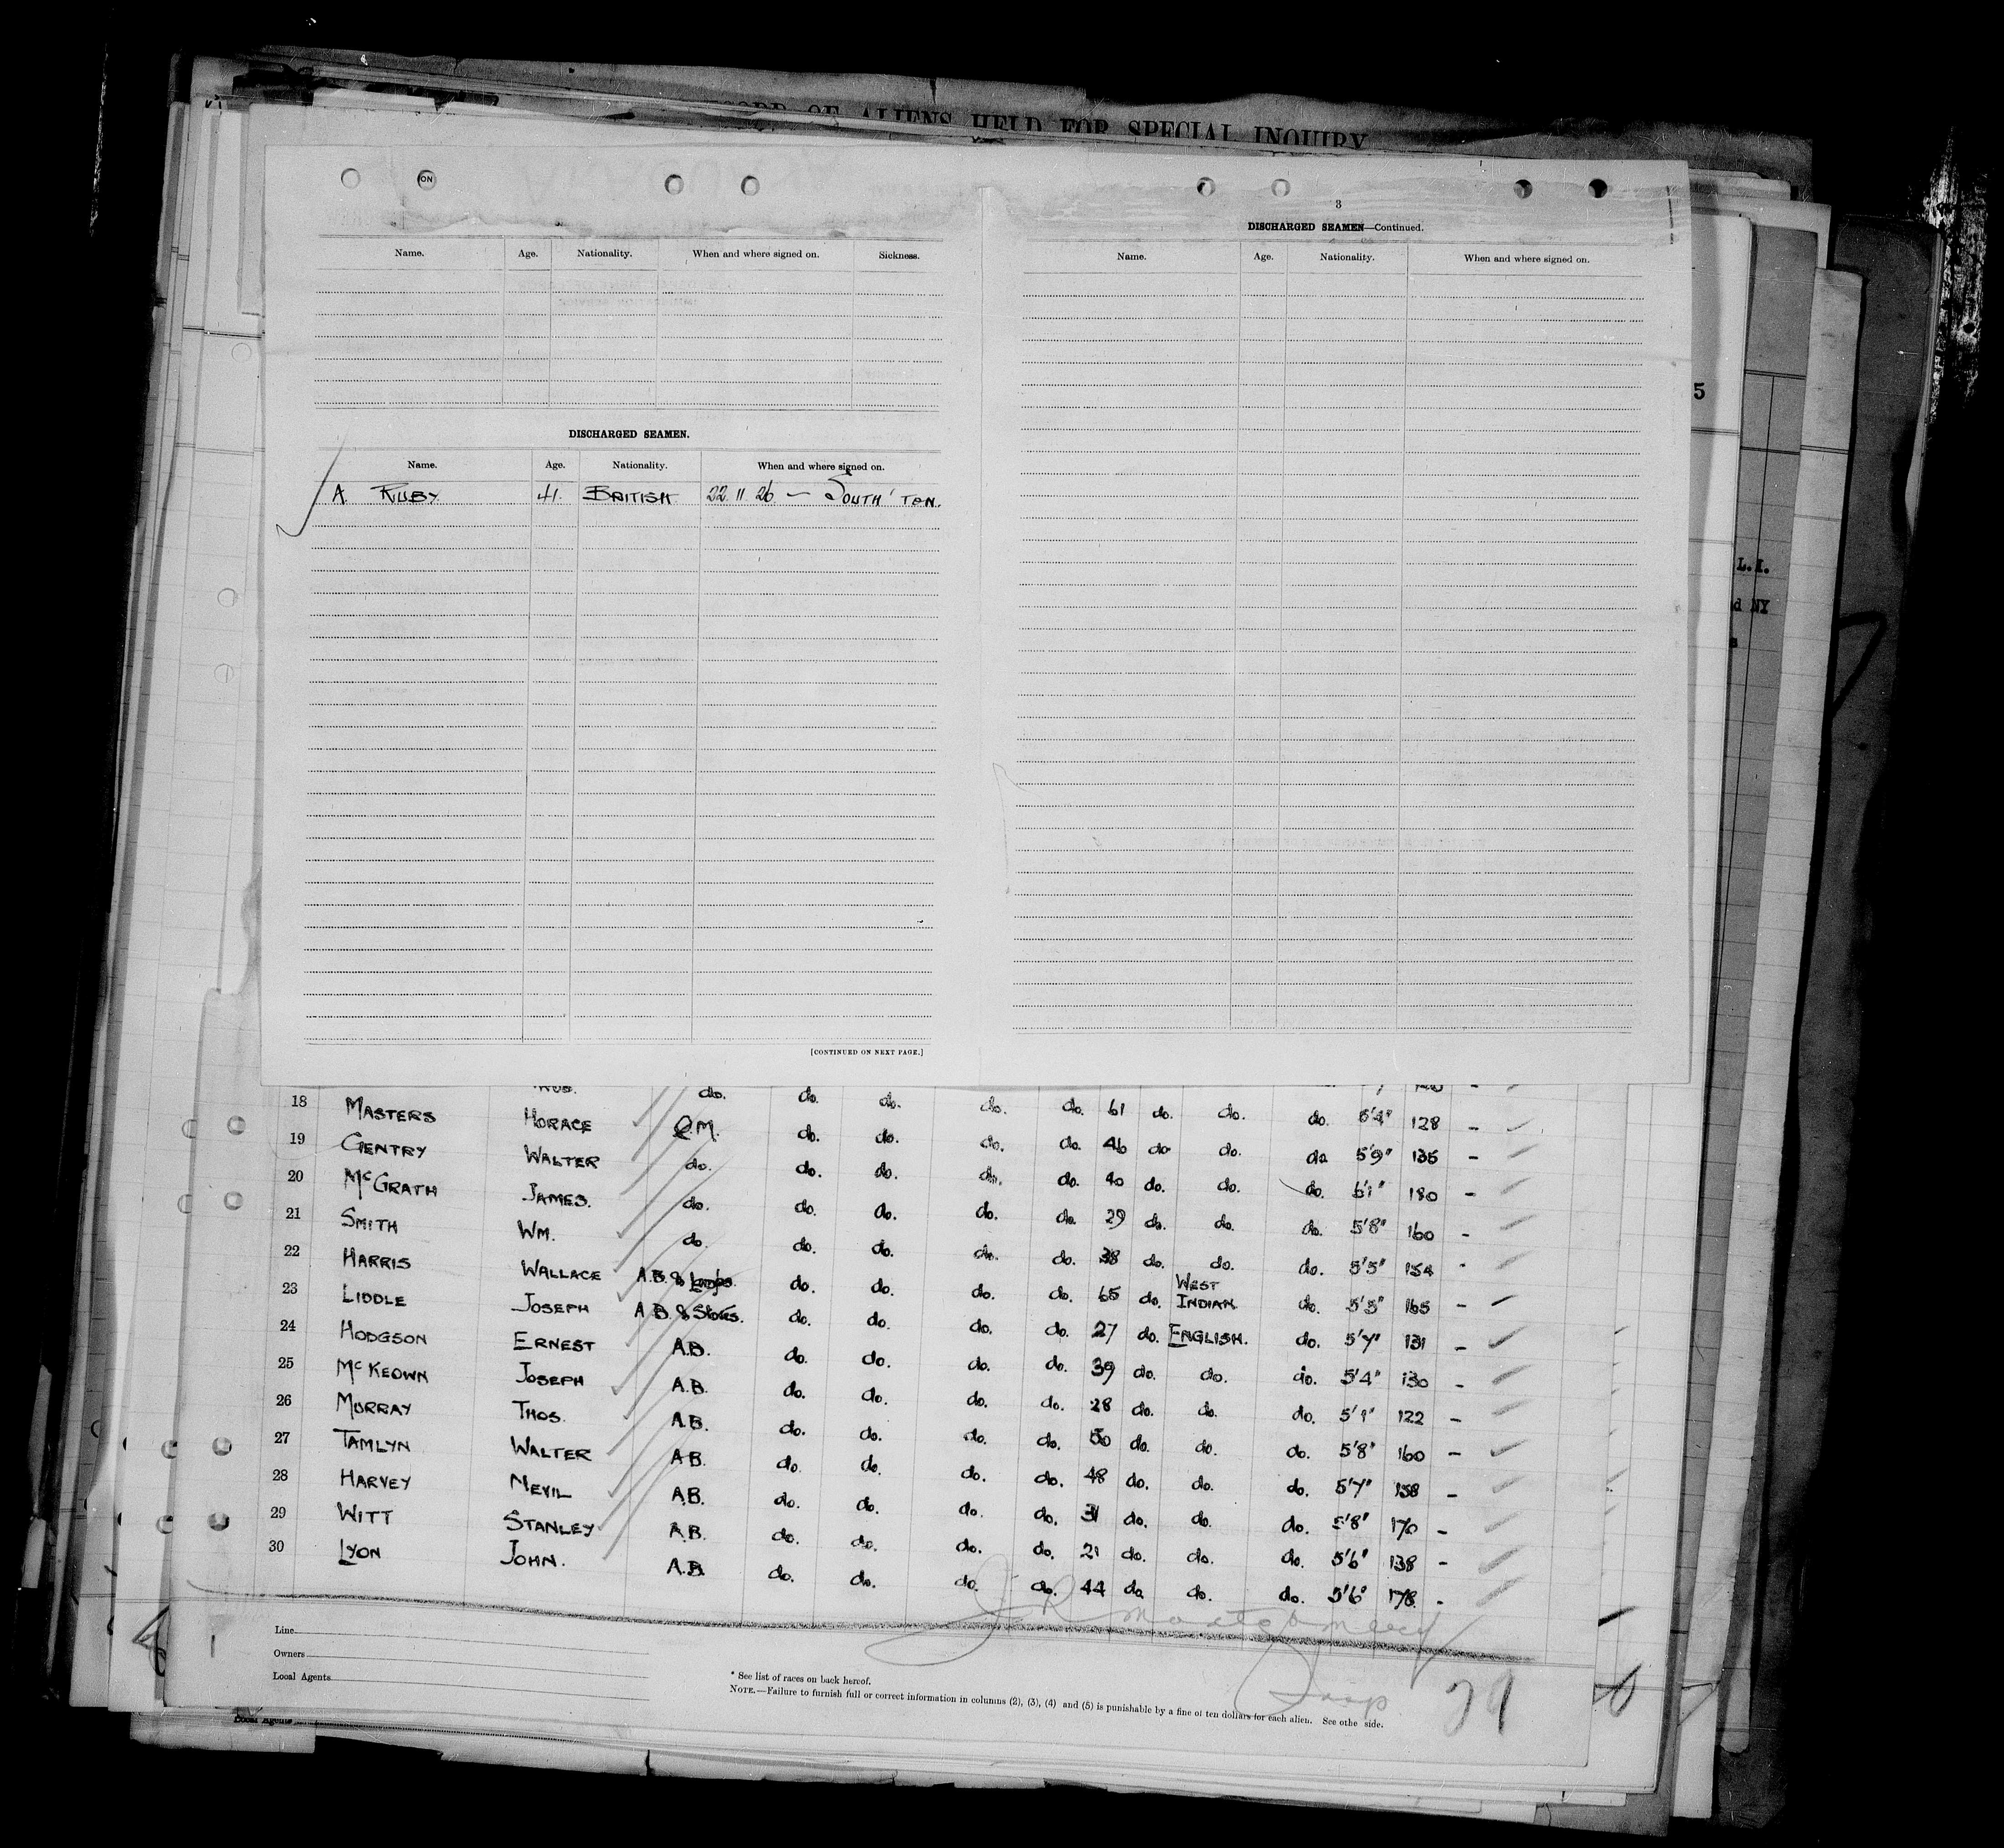 ALIENS HELD FOR SPECIAL INQUIRY
ON
Name. Age. Nationality. When and where signed on. Sickness.
DISCHARGED SEAMEN.
Name. Age. Nationality. When and where signed on.
A. RUBY 41. BRITISH 22.11.26 — SOUTH'TON.
[CONTINUED ON NEXT PAGE.]
3
DISCHARGED SEAMEN—Continued.
Name. Age. Nationality. When and where signed on.
5
L.I.
d NY
do. do. do. do. do. 61 do. do. do. 5'4" 128 -
18 MASTERS HORACE Q.M. do. do. do. do. 46 do. do. do. 5'9" 135 -
19 GENTRY WALTER do. do. do. do. do. 40 do. do. do. 6'1" 180 -
20 McGRATH JAMES. do. do. do. do. do. 29 do. do. do. 5'8" 160 -
21 SMITH WM. do. do. do. do. do. 38 do. do. do. 5'5" 154 -
22 HARRIS WALLACE A.B. & Lamps. do. do. do. do. 65 do. WEST INDIAN. do. 5'5" 165 -
23 LIDDLE JOSEPH A.B. & Stores. do. do. do. do. 27 do. ENGLISH. do. 5'7" 131 -
24 HODGSON ERNEST A.B. do. do. do. do. 39 do. do. do. 5'4" 130 -
25 McKEOWN JOSEPH A.B. do. do. do. do. 28 do. do. do. 5'9" 122 -
26 MURRAY THOS. A.B. do. do. do. do. 50 do. do. do. 5'8" 160 -
27 TAMLYN WALTER A.B. do. do. do. do. 48 do. do. do. 5'7" 158 -
28 HARVEY MEVIL A.B. do. do. do. do. 31 do. do. do. 5'8" 170 -
29 WITT STANLEY A.B. do. do. do. do. 21 do. do. do. 5'6" 138 -
30 LYON JOHN. A.B. do. do. do. do. 44 do. do. do. 5'6" 178 -
Line
Owners
Local Agents
* See list of races on back hereof.
NOTE.—Failure to furnish full or correct information in columns (2), (3), (4) and (5) is punishable by a fine of ten dollars for each alien. See othe side.
29
Local Agents